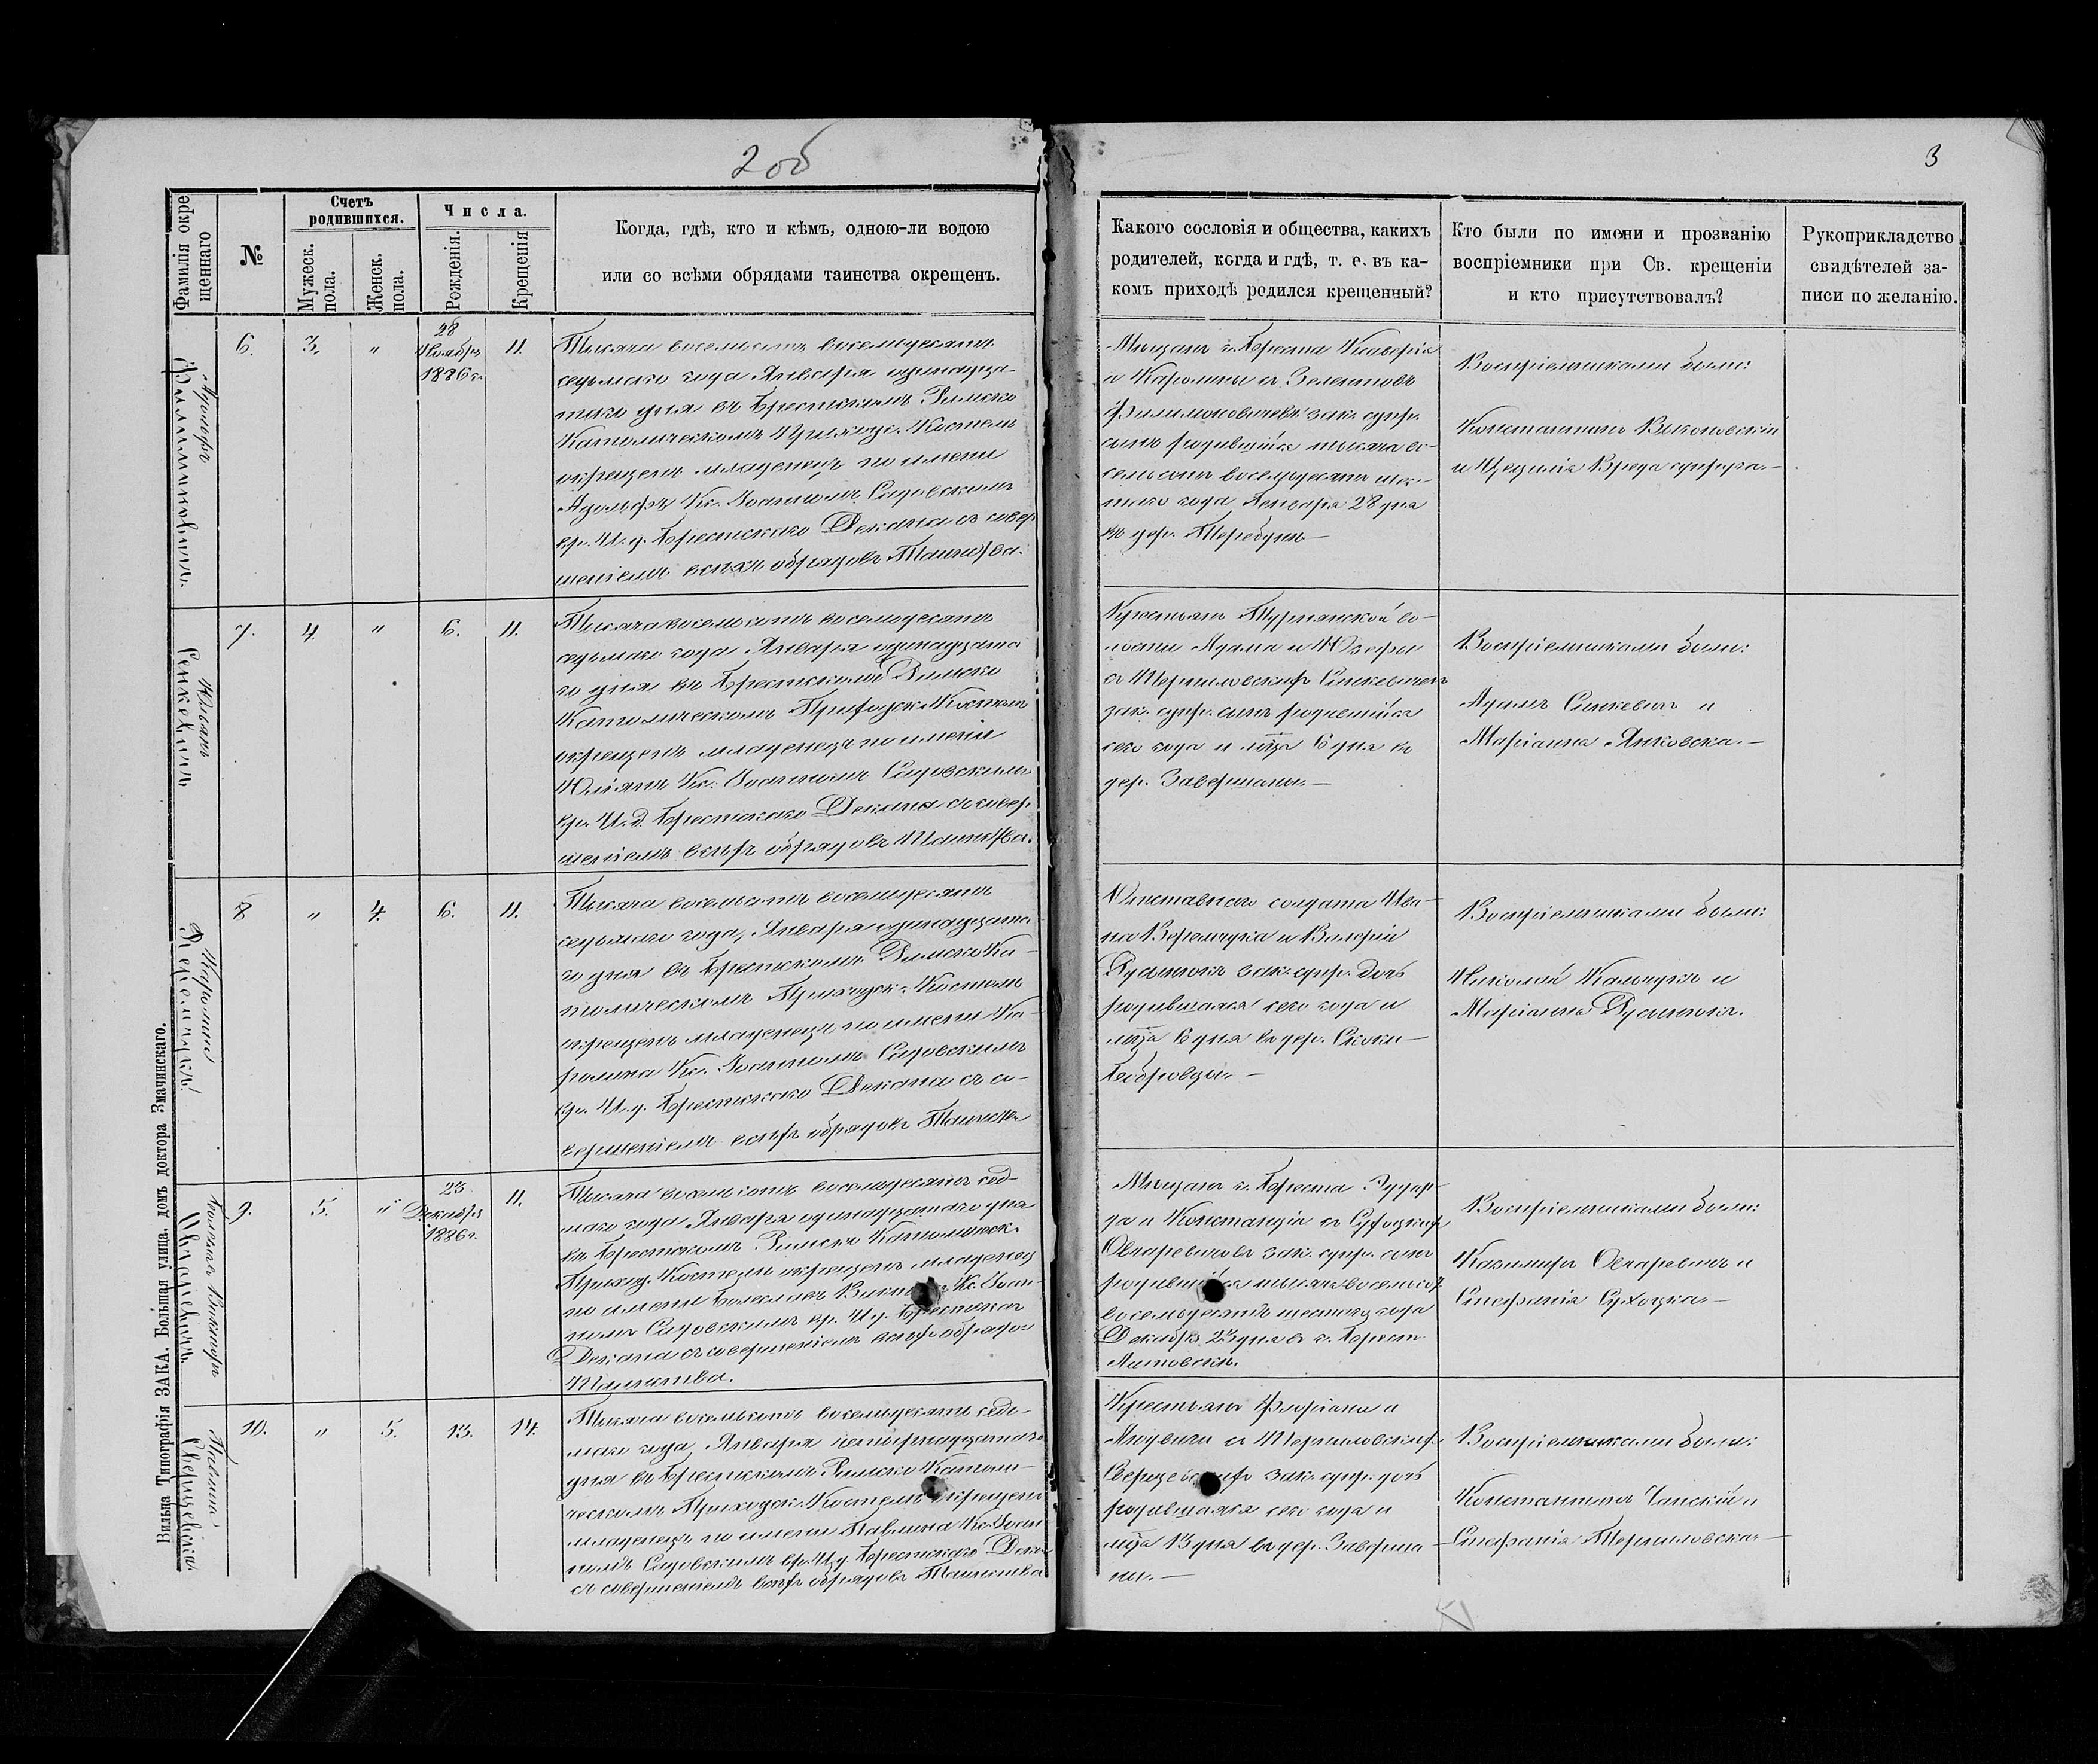 2об
3
Фамилія окре
щеннаго
№
Счетъ
родившихся.
Мужеск.
пола.
Женск.
пола.
Числа.
Рожденія.
Крещенія
Когда, гдѣ, кто и кѣмъ, одною-ли водою
или со всѣми обрядами таинства окрещенъ.
Какого сословія и общества, какихъ
родителей, когда и гдѣ, т. е. въ ка-
комъ приходѣ родился крещенный?
Кто были по имени и прозванію
воспріемники при Св. крещеніи
и кто присутствовалъ?
Рукоприкладство
свидѣтелей за-
писи по желанію.
Адольфъ
6.
3.
"
28
Ноября
1886 г.
11.
Тысяча восемьсотъ восемьдесятъ
седьмаго года Января одинадца-
таго дня въ Брестскомъ Римско
Католическомъ Приходск. Костелѣ
окрещенъ младенецъ по имени
Адольфъ Кс. Іоанномъ Садовскимъ
вр. И. д. Брестскаго Декана съ совер
шеніемъ всѣхъ обрядовъ Таинства.
Мѣщанъ г. Бреста Ксаверія
и Каролины съ
зак. супр.
сынъ родившійся тысяча во-
семьсотъ восемьдесятъ шес-
таго года 28 дня
въ дер. Теребунь —
Воспріемниками были:
Константинъ
и Цецилія супруга —
Юльянъ
Сенкевичъ
7.
4.
"
6.
11.
Тысяча восемьсотъ восемьдесятъ
седьмаго года Января одинадцата
го дня въ Брестскомъ Римско
Католическомъ Приходск. Костелѣ
окрещенъ младенецъ по имени
Юліянъ Кс. Іоанномъ Садовскимъ
вр. И. д. Брестскаго Декана съ совер.
шеніемъ всѣхъ обрядовъ Таинства.
Крестьянъ Турнянской во-
лости Адама и Юзефы
съ Сенкевичей
зак. супр. сынъ родившійся
сего года и мца 6 дня въ
дер. Завершаны —
Воспріемниками были:
Адамъ Сенкевичъ и
Маріанна Янковска —
Каролина
8
"
4.
6.
11.
Тысяча восемьсотъ восемьдесятъ
седьмаго года, Января одинадцата
го дня въ Брестскомъ Римско Ка-
толическомъ Приходск. Костелѣ
окрещенъ младенецъ по имени Ка-
ролина Кс. Іоанномъ Садовскимъ
вр. И. д. Брестскаго Декана съ со-
вершеніемъ всѣхъ обрядовъ Таинства
Отставнаго солдата Ива-
на Веремчука и Валеріи
зак. супр. дочь
родившаяся сего года и
мца 6 дня въ дер. Скоки —
Воспріемниками были:
Николай и
Маріанна
Болеславъ Викторъ
9.
5.
"
23
Декабря
1886 г.
11.
Тысяча восемьсотъ восемьдесятъ сед-
маго года Января одинадцатаго дня
въ Брестскомъ Римско Католическ.
Приход. Костелѣ окрещенъ младенец
по имени Болеславъ Викторъ Кс. Іоан-
номъ Садовскимъ вр. И д. Брестскаго
Декана съ совершеніемъ всѣхъ обрядов
Таинства.
Мѣщанъ г. Бреста Эдуар-
да и Констанціи съ Сухоцкихъ
зак. супр. сынъ
родившійся тысяча восемьсот
восемьдесятъ шестаго года
Декабря 23 дня в г. Брест-
Литовскѣ.
Воспріемниками были:
Казимиръ и
Стефанія Сухоцка —
Павлина
10.
"
5.
13.
14.
Тысяча восемьсотъ восемьдесятъ седь-
маго года, Января четырнадцатаго
дня въ Брестскомъ Римско Католи-
ческомъ Приходск. Костелѣ окрещенъ
младенецъ по имени Павлина Кс. Іоан
номъ Садовскимъ вр. И д. Брестскаго Декан
съ совершеніемъ всѣхъ обрядовъ Таинства
Крестьянъ Флоріана и
Людвики съ
зак. супр. дочь
родившаяся сего года и
мца 13 дня въ дер. Заверша-
ны. —
Воспріемниками были:
Константинъ и
Стефанія
Вильна Типографія ЗАКА. Большая улица. домъ доктора Змачинскаго.